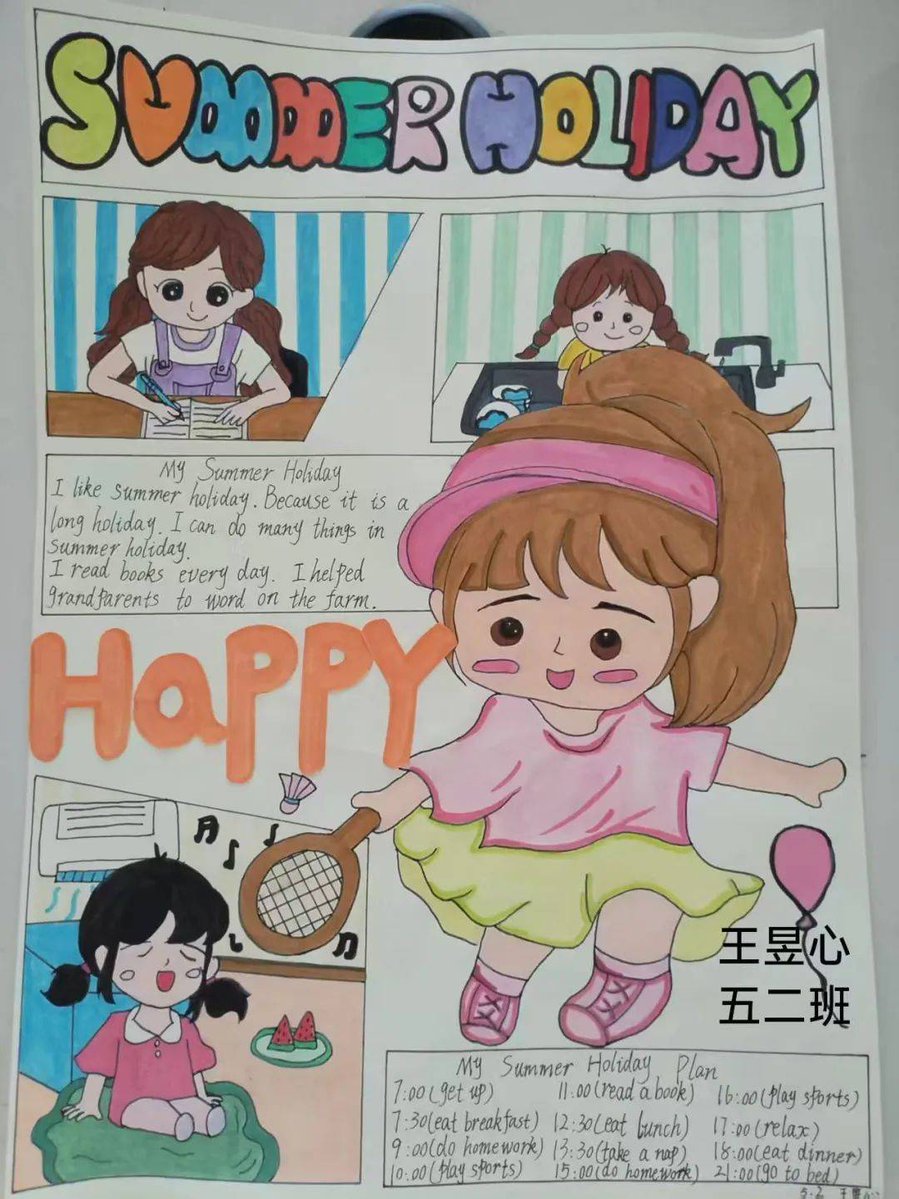 SUMMER HOLIDAY
My Summer Holiday
I like summer holiday. Because it is a
long holiday. I can do many things in
Summer holiday.
I read books every day. I helped
grandparents to word on the farm.
HaPPY
王昱心
五二班
My Summer Holiday Plan
7:00(get up) 11:00(read a book) 16:00(play sports)
7:30(eat breakfast) 12:30(eat lunch) 17:00(relax)
9:00(do homework) 13:30(take a nap) 18:00(eat dinner)
10:00(play sports) 15:00(do homework) 21:00(go to bed)
5.2 王昱心